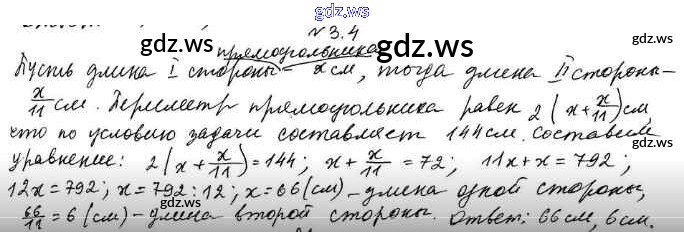 gdz.ws
№ 3.4
прямоугольника
Пусть длина I стороны – x см, тогда длина II стороны –
x/11 см. Периметр прямоугольника равен 2(x + x/11) см,
что по условию задачи составляет 144 см. Составим
уравнение: 2(x + x/11) = 144; x + x/11 = 72; 11x + x = 792;
12x = 792; x = 792 : 12; x = 66 (см) – длина одной стороны,
66/11 = 6 (см) – длина второй стороны. Ответ: 66 см, 6 см.
gdz.ws
gdz.ws
gdz.ws
gdz.ws
gdz.ws